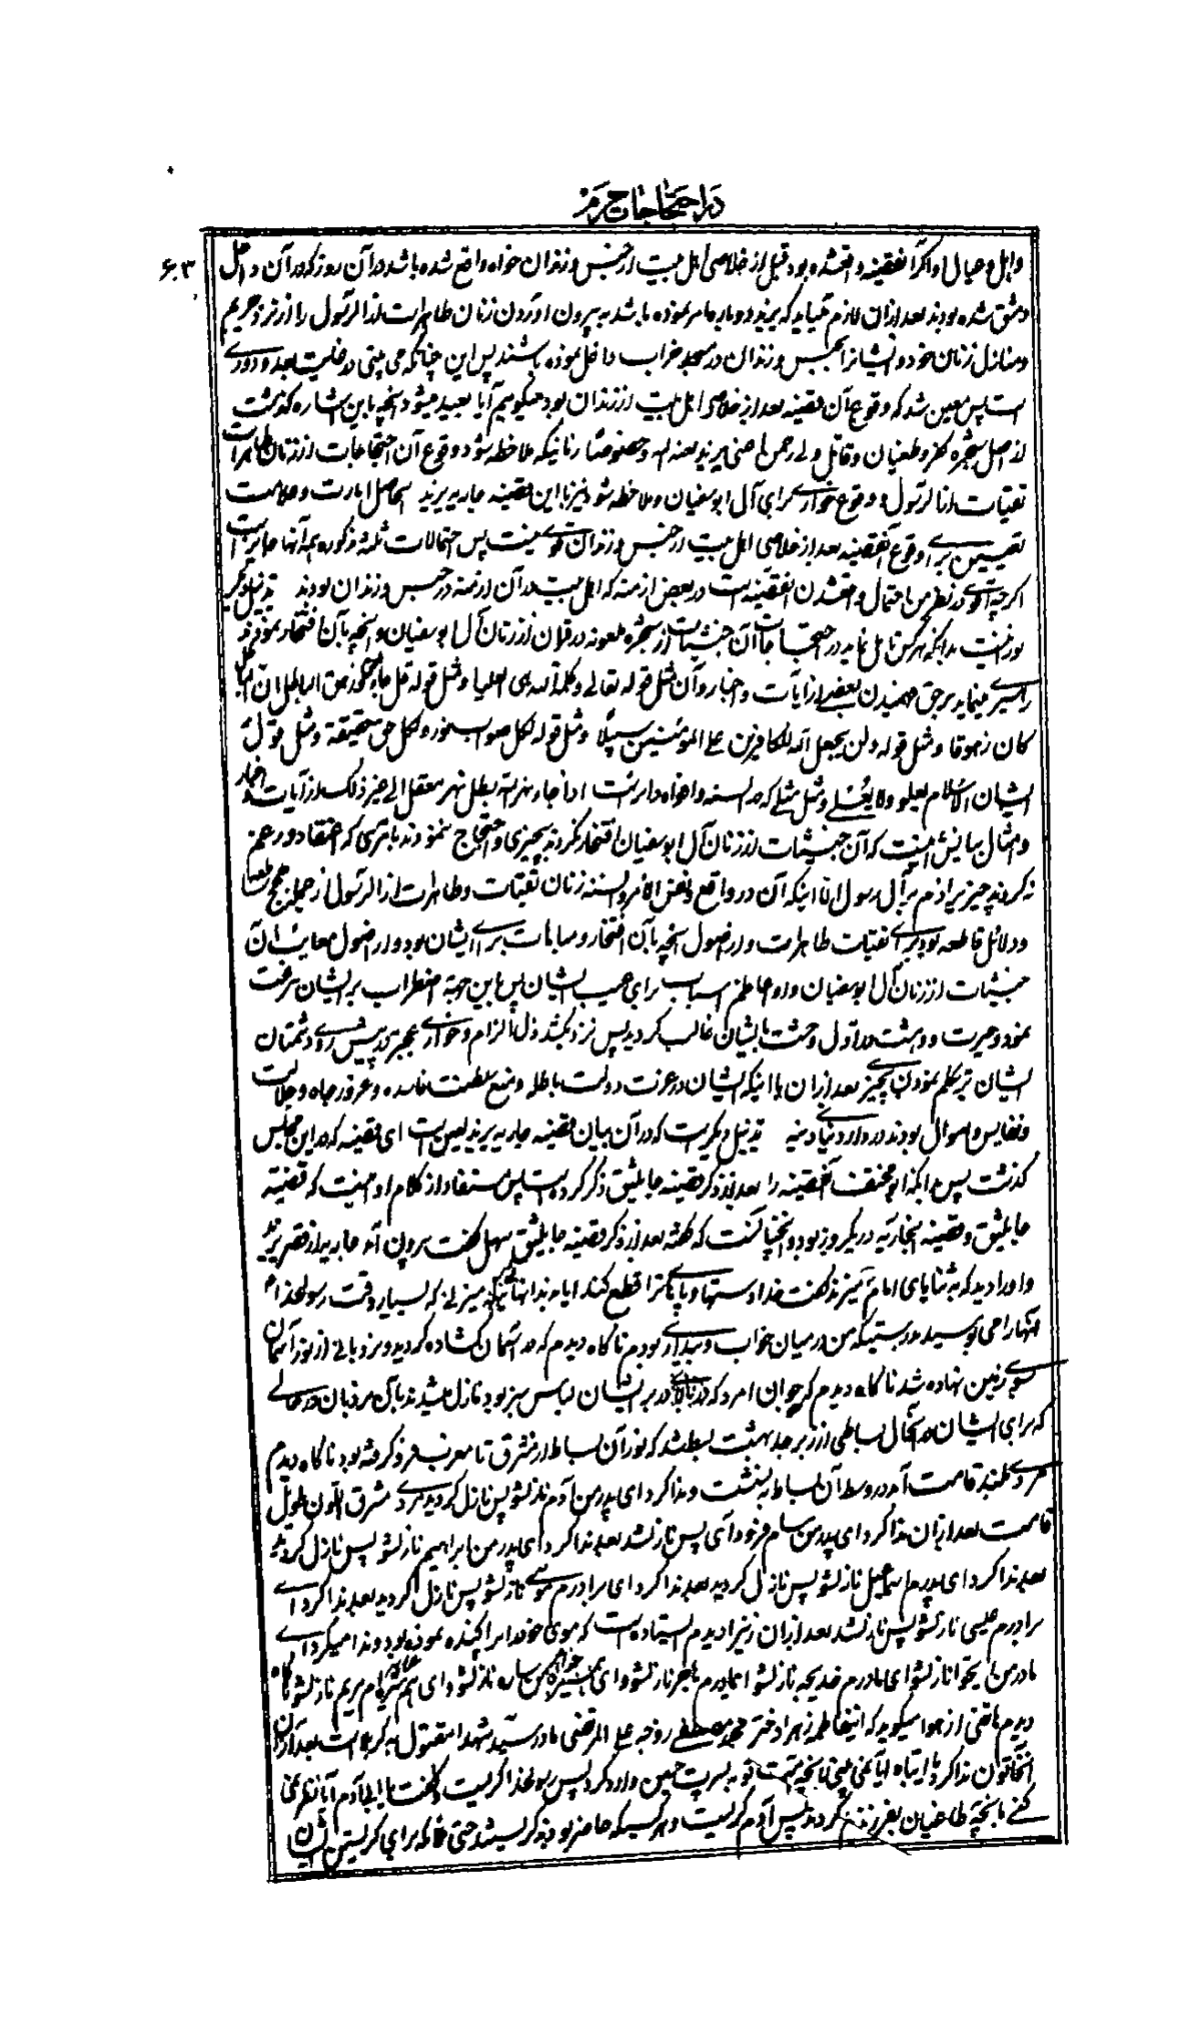 در احتجاج
۶۰۳
واهل و عیال او اگر آنقضیه واقعشده بود قبل از خلاصی اهل بیت از حبس و زندان خواه واقع شده باشد در آن روز که در آن داخل
دمشق شده بودند بعد از آن لازم میاید که یزید دوباره امر نموده باشد به بیرون آوردن زنان طاهرات از آل رسول را از نزد حریم
و منازل زنان خود و ایشانرا بحبس و زندان در مسجد خراب داخل نموده باشند پس این چنانکه می بینی در غایت بعد و دوری
است پس معین شد که وقوع آن قضیه بعد از خلاصی اهل بیت از زندان بود میگوییم آیا بعید میشود آنچه باین اشاره گذشت
از اصل شجره کفر و طغیان و قاتل ولی رحمن اعنی یزید لعنه الله و خصوصا زمانیکه ملاحظه شود وقوع آن احتجاجات از زنان طاهرات
نقیات از آل رسول و وقوع خواری برای آل ابو سفیان و ملاحظه شود نیز با این قضیه جاریه یزید حاصل عبارت و علامت
تعیین برای وقوع آنقضیه بعد از خلاصی اهل بیت از حبس و زندان قوی نیست پس احتمالات ثلثه مذکوره همه آنها جایز است
اگرچه اقوی در نظر من احتمال واقعشدن آنقضیه است در بعض ازمنه که اهل بیت در آن ازمنه در حبس و زندان بودند تذییل دیگر
نورانیت بدانکه هر کس تامل نماید در احتجاجات آن خبیثات از شجره ملعونه در قران از زنان آل ابو سفیان و آنچه بآن افتخار نمودند
راسیر مینماید بر حق فهمیدن بعضی از آیات و اخبار و آن مثل قوله تعالی و کلمة الله هی العلیا و مثل قوله قل جاء الحق و زهق الباطل ان الباطل
کان زهوقا و مثل قوله و لن یجعل الله للکافرین علی المؤمنین سبیلا و مثل قوله لکل صواب نور و لکل حق حقیقة و مثل قول
ایشان الاسلام یعلو و لا یعلی و مثل مثلی که در السنه و افواه دایر است اذا جاء نهر الله بطل نهر معقل الی غیر ذلک از آیات و اخبار
و امثال بیانش اینست که آن خبیثات از زنان آل ابو سفیان افتخار نکردند بچیزی و احتجاج ننمودند بامری که اعتقاد و زعم
نه کردند چیزیرا ذم بر آل رسول الا اینکه آن در واقع و نفس الامر و السنه زنان نقیات و طاهرات از آل رسول از جمله حجج ساطعه
و دلائل قاطعه بود برای نقیات طاهرات و از اصول آنچه بآن افتخار و مباهات برای ایشان بود و از اصول معایب آن
خبیثات از زنان آل ابو سفیان و از اعاظم اسباب برای عیب ایشان پس باین جهة اضطراب بر ایشان سرعت
نمود و حیرت و دهشت در اول وحشت بایشان غالب گردید پس نزدیکشد ذل الزام و خواری عجز که پیش روی دشمنان
ایشان ترک تکلم نمودن بچیز بعد از آن با اینکه ایشان در عزت دولت باطله و منبع سلطنت فاسده و غرور جاه و جلالت
و نفایس و اموال بودند در دار دنیا دنیه تذییل دیگریست که در آن بیان قضیه جاریه یزید لعین است ای قضیه که در این مجلس
گذشت پس بدانکه ابو مخنف آنقضیه را بعد از ذکر قضیه جاثلیق ذکر کرده است پس مستفاد از کلام او اینست که قضیه
جاثلیق و قضیه الجاریه در یکروز بود و آنچنانست که گفته بعد از ذکر قضیه جاثلیق سهل گفت بیرون آمد جاریه از قصر یزید
و او را دید که به ثنایای امام میزند گفت خدا دستها و پاهایترا قطع کند ایا بدندانهائیکه میزنی که بسیار وقت رسولخدا
آنها را می بوسید بدرستیکه من در میان خواب و بیداری بودم ناگاه دیدم که در آسمان گشاده گردید و نردبانی از نور از آسمان
بسوی زمین نهاده شد ناگاه دیدم که جوان امرد که در بر ایشان لباس سبز بود نازل میشدند بآن نردبان در حالی
که برای ایشان در آنحال بساطی از زبرجد بهشت بسط شد که نور آن بساط از مشرق تا مغرب فرو گرفته بود ناگاه دیدم
مردی بلند قامت آمد در وسط آن بساط به بنشست و ندا کرد ای پدر من آدم نازلشو پس نازل گردید مردی مشرق اللون طویل
قامت بعد از آن ندا کرد ای پدر من سام فرود آی پس نازلشد بعد ندا کرد ای پدر من ابراهیم نازلشو پس نازل گردید
بعد ندا کرد ای پدرم اسمعیل نازلشو پس نازل گردید بعد ندا کرد ای برادرم موسی نازلشو پس نازل گردید بعد ندا کرد ای
برادرم عیسی نازلشو پس نازلشد بعد از آن زنیرا دیدم ایستاده است که موی خود را پراکنده نموده بود و ندا میکرد ای
مادر من ای حوا نازلشو ای مادرم خدیجه نازلشو ای مادرم هاجر نازلشو و ای خواهر من ساره نازلشو و ای مریم نازلشو ناگاه
دیدم هاتفی از هوا میگوید که اینفاطمه زهرا دختر محمد مصطفی زوجه علی المرتضی مادر سید شهدا مقتول به کربلا است بعد از آن
آنخاتون ندا کرد یا ابتاه آیا نمی بینی بآنچه امت تو به پسرت حسین وارد کرد پس رسولخدا گریست و گفت یا ابی آدم آیا نظر نمی
کنی بآنچه طاغیان بفرزندم کردند پس آدم گریست و هر کسیکه حاضر بود گریستند حتی ملائکه برای گریستن ایشان